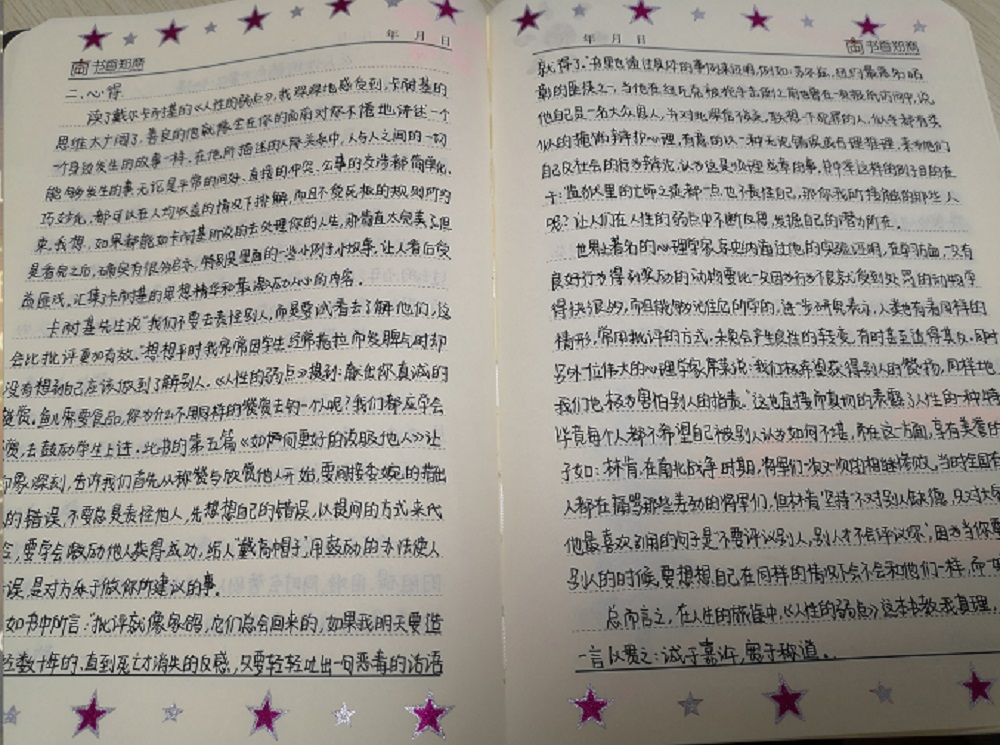 年 月 日
书香短廊
二、心得
读了戴尔·卡耐基的《人性的弱点》,我深深地感受到,卡耐基的
思维太广阔了,善良的他就像坐在你的面前对你不倦地讲述一个
个身边发生的故事一样,在他所描述的人际关系中,人与人之间的一切
能够发生的事无论是平常的问好、直接的冲突、公事的交涉都简单化、
巧妙化,都可以在人均收益的情况下排解,而且不受死板的规则所约
束,我想,如果都能如卡耐基所说的去处理你的人生,那简直太完美了,但
是看完之后,确实有很多启示,特别是里面的一些小例子小故事,让人看后受
益匪浅,汇集了卡耐基的思想精华和最激动人心的内容。
卡耐基先生说"我们不要去责怪别人,而是要试着去了解他们,这
会比批评更加有效。"想想平时我常常因学生经常拖拉而发脾气时却
没有想到自己应该做到了解别人。《人性的弱点》提到:献出你真诚的
赞赏。鱼儿需要食品,你为什么不用同样的赞赏去钓一个人呢?我们都应学会
赏,去鼓励学生上进。此书的第五篇《如何更好的说服他人》让
印象深刻,告诉我们首先从称赞与欣赏他人开始,要间接委婉的指出
的错误,不要总是责怪他人,先想想自己的错误,以提问的方式来代
,要学会激励他人获得成功,给人"戴高帽子",用鼓励的办法使人
误,是对方乐于做你所建议的事。
如书中所言:"批评就像家鸽,它们总会回来的,如果我明天要造
数十年的,直到死亡才消失的反感,只要轻轻吐出一句恶毒的话语
年 月 日
书香短廊
就得了。"书里也通过具体的事例来证明,例如:苏
的匪徒之一,当他在纽瓦克被枪手击倒之前也曾在一次报纸访问中,说
他自己是一名大众恩人,并对此深信不疑,联想一下犯罪的人,似乎都有类
似的掩饰辩护心理,有意的以一种无论错误或合理推理,来为他们
自己反社会的行为辩论,认为这是
于:监狱里的亡命之徒都一点也不责怪自己,那你我所接触的那些人
呢?让人们在人性的弱点中不断反思,发掘自己的潜力所在。
世界著名的心理学家史内基过他的实验证明,在学方面,一只有
良好行为得到奖励的动物要比一只因行为不良就受到处罚的动物学
得快很多,而且能够记住它所学的,进一步研究表示,人类也有着同样的
情形,常用批评的方式,未免会产生良性的转变,有时甚至适得其反,同时
另外一位伟大的心理学家席莱说:"我们极希望获得别人的赞扬,同样地
我们也极为害怕别人的指责。"这也直接而真切的表露了人性的一种
毕竟每个人都不希望自己被别人认为如何不堪,而在这一方面,享有美誉的
子如:林肯,在南北战争时期,将军们一次又一次的相继惨败,当时全国有
人都在痛骂那些差劲的将军们,但林肯"坚持不对别人缺德,只对
他最喜欢引用的句子是"不要评议别人,别人才不会评议你。"因为当你
别人的时候,要想想自己在同样的情况会不会和他们一样,而
总而言之,在人性的旅途中,《人性的弱点》这本书教我真理,
一言以蔽之:诚于嘉许,宽于称道。